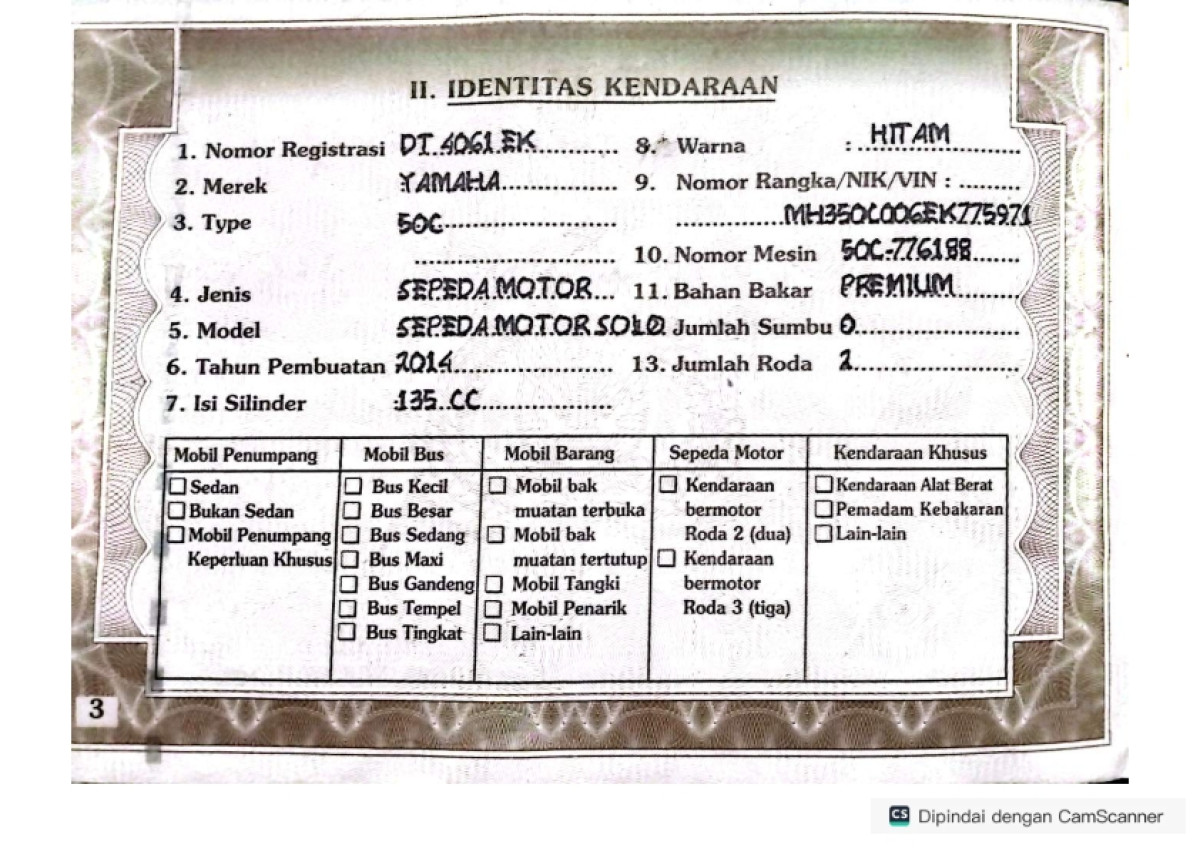 II. IDENTITAS KENDARAAN
1. Nomor Registrasi DT 4061 EK
2. Merek : YAMAHA
3. Type 50C
4. Jenis SEPEDA MOTOR
5. Model SEPEDA MOTOR SOLO
6. Tahun Pembuatan 2014
7. Isi Silinder : 135 CC
8. Warna : HITAM
9. Nomor Rangka/NIK/VIN :
MH350C006EK775971
10. Nomor Mesin 50C-776188
11. Bahan Bakar PREMIUM
Jumlah Sumbu 0
13. Jumlah Roda 2
Mobil Penumpang
Sedan
Bukan Sedan
Mobil Penumpang
Keperluan Khusus
Mobil Bus
Bus Kecil
Bus Besar
Bus Sedang
Bus Maxi
Bus Gandeng
Bus Tempel
Bus Tingkat
Mobil Barang
Mobil bak
muatan terbuka
Mobil bak
muatan tertutup
Mobil Tangki
Mobil Penarik
Lain-lain
Sepeda Motor
Kendaraan
bermotor
Roda 2 (dua)
Kendaraan
bermotor
Roda 3 (tiga)
Kendaraan Khusus
Kendaraan Alat Berat
Pemadam Kebakaran
Lain-lain
3
CS Dipindai dengan CamScanner